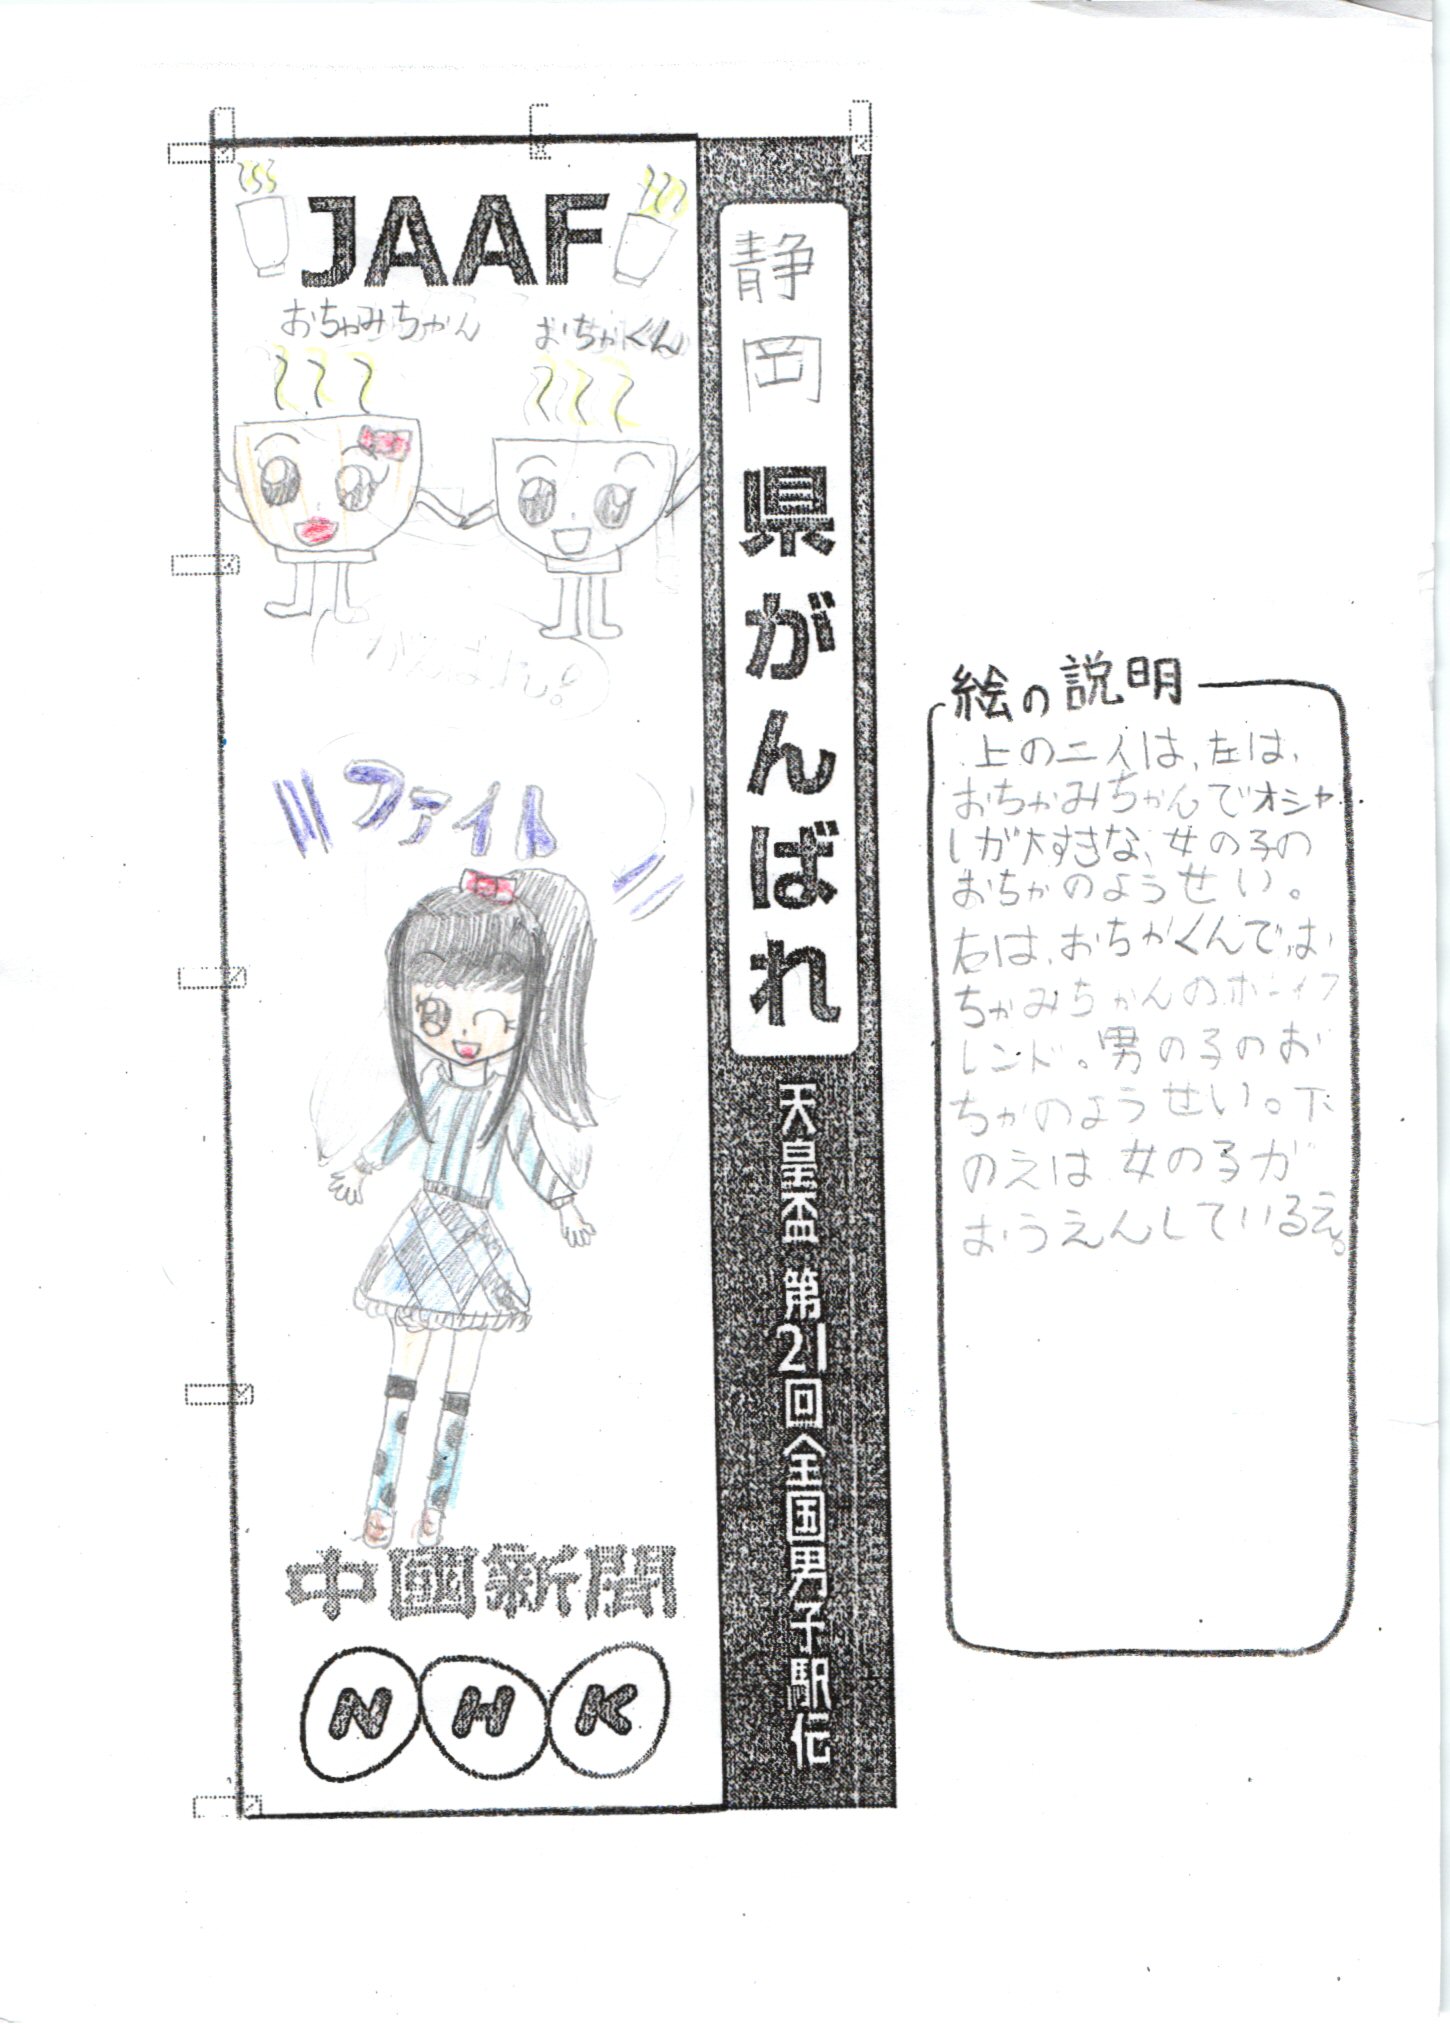 JAAF
おちゃみちゃん
おちゃくん
がんばれ!
ファイト
中國新聞
NHK
静岡県がんばれ
天皇盃 第21回全国男子駅伝
絵の説明
上の二人は、左は、
おちゃみちゃんでオシャ
レが大すきな、女の子の
おちゃのようせい。
右は、おちゃくんで、お
ちゃみちゃんのボーイフ
レンド。男の子のお
ちゃのようせい。下
のえは女の子が
おうえんしているえ。